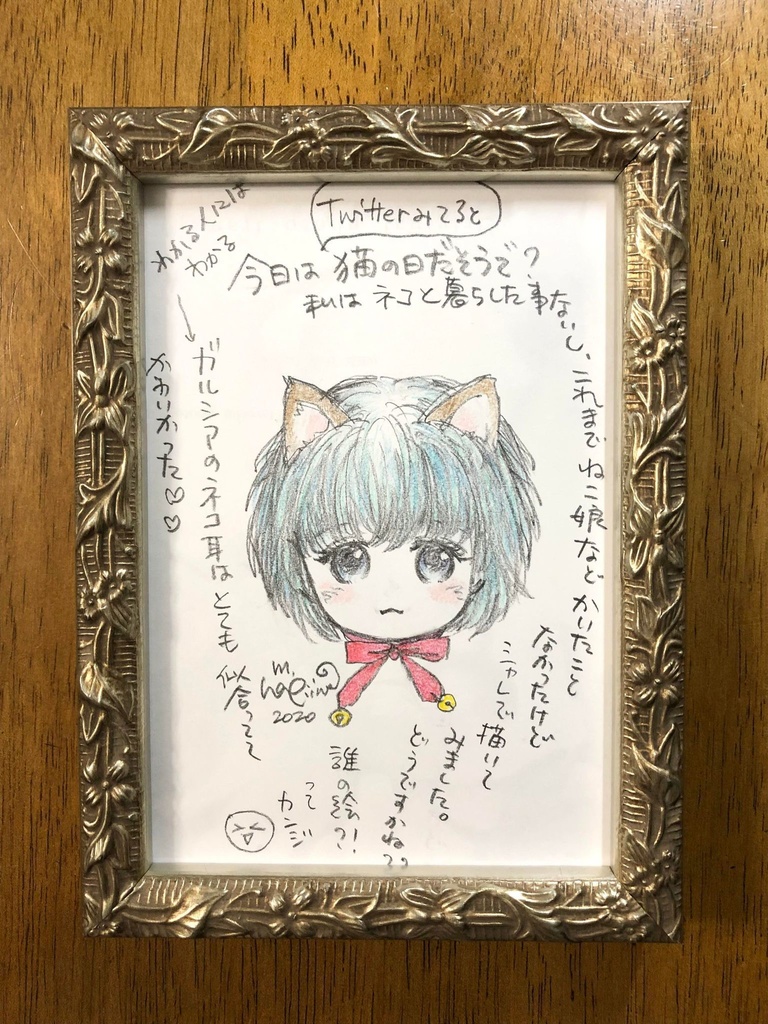 Twitterみてると
今日は猫の日だそうで?
私はネコと暮らした事ないし、これまでねこ娘などかいたこと
なかったけど
シャレで描いて
みました。
どうですかね??
誰の絵?!
って
カンジ
わかる人には
わかる
ガルシアのネコ耳はとても似合ってて
かわいかった♡♡
M.
2020